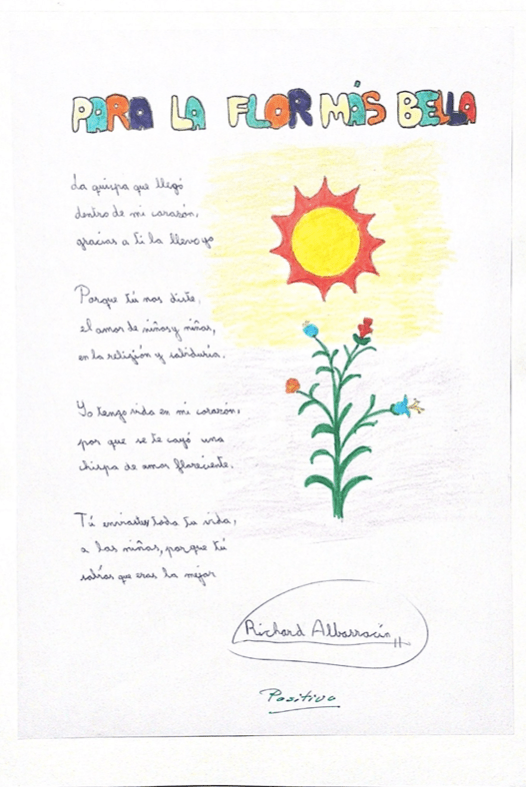 PARA LA FLOR MÁS BELLA
La quispa que llegó
dentro de mi corazón,
gracias a ti la llevo yo
Porque tú nos diste,
el amor de niños y niñas,
en la religión y sabiduría.
Yo tengo vida en mi corazón,
por que se te cayó una
chispa de amor floreciente.
Tú enviastes toda tu vida,
a las niñas, porque tú
sabías que eras la mejor
Richard Albarracín
Positivo